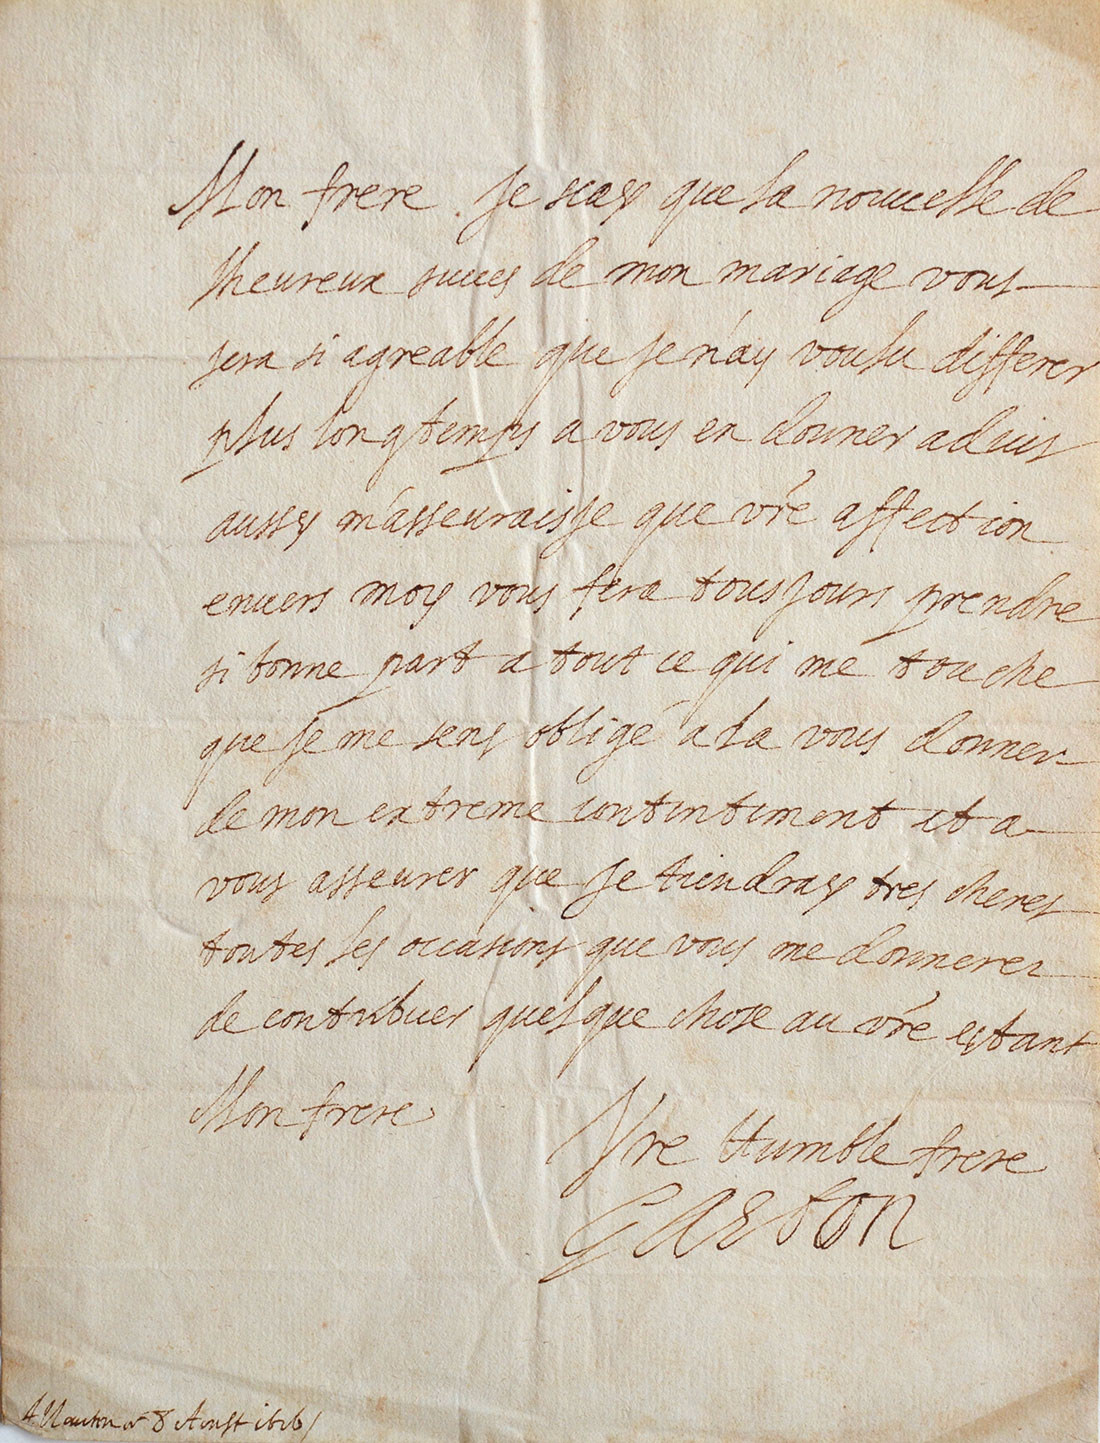 Mon frere. Je scay que la nouuelle de
lheureux succes de mon mariage vous
sera si agreable que je n'ay voulu differer
plus longtemps a vous en donner aduis
aussy m'asseuraisje que vre affection
enuers moy vous fera tousjours prendre
si bonne part a tout ce qui me touche
que je me sens obligé a la vous donner
de mon extreme contentement et a
vous asseurer que je tiendray tres cheres
toutes les occasions que vous me donnerez
de contribuer quelque chose au vre estant
Mon frere
Vre Humble frere
Gaston
8 Aoust 1626